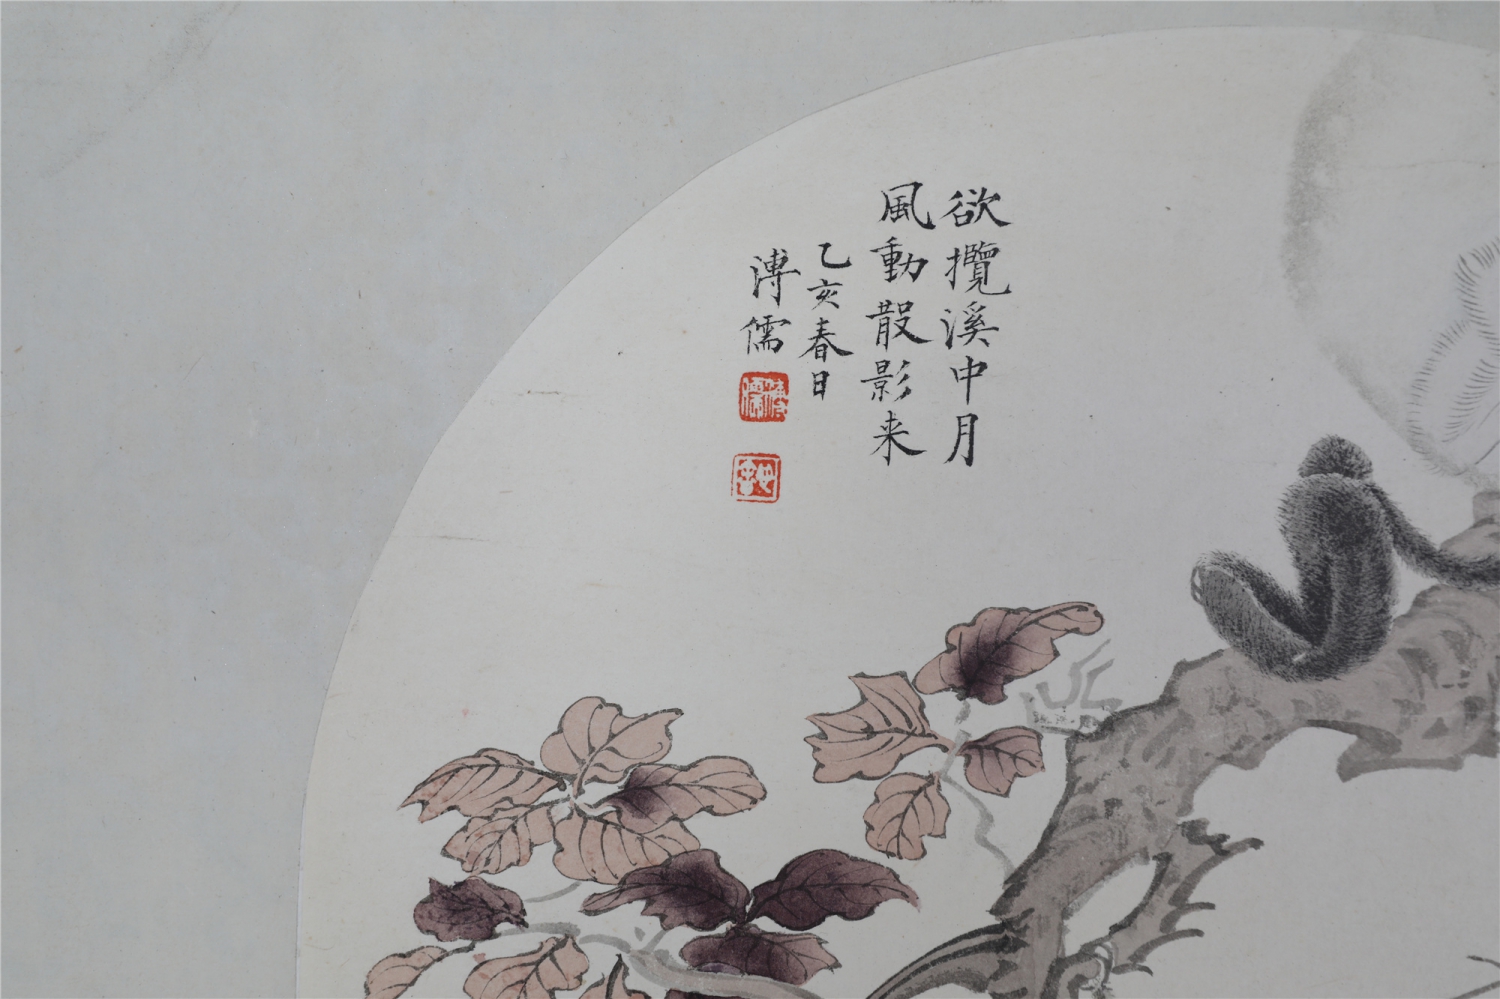 欲攬溪中月
風動散影来
乙亥春日
溥儒
溥儒